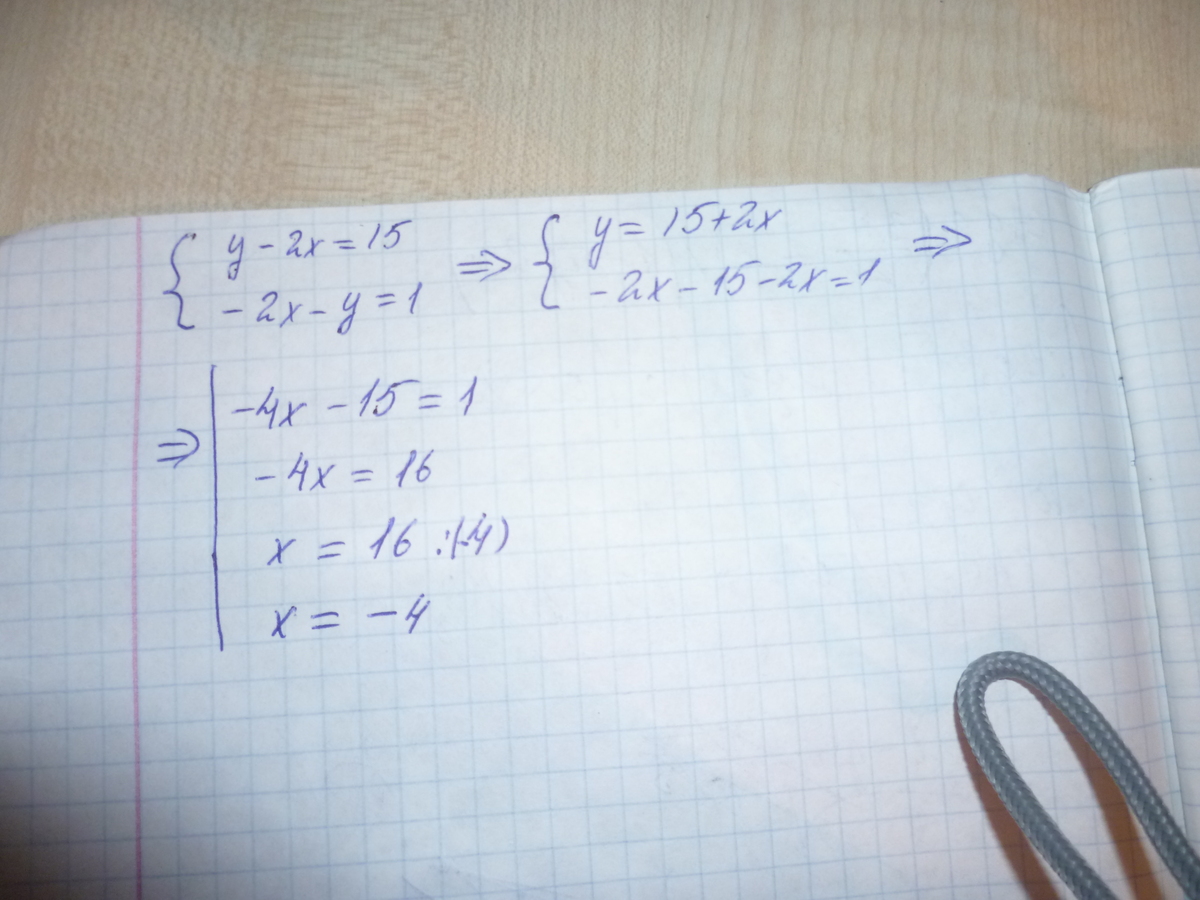 { y - 2x = 15 ⇒ { y = 15 + 2x ⇒
- 2x - y = 1 - 2x - 15 - 2x = 1
⇒ | -4x - 15 = 1
- 4x = 16
x = 16 :(-4)
x = -4